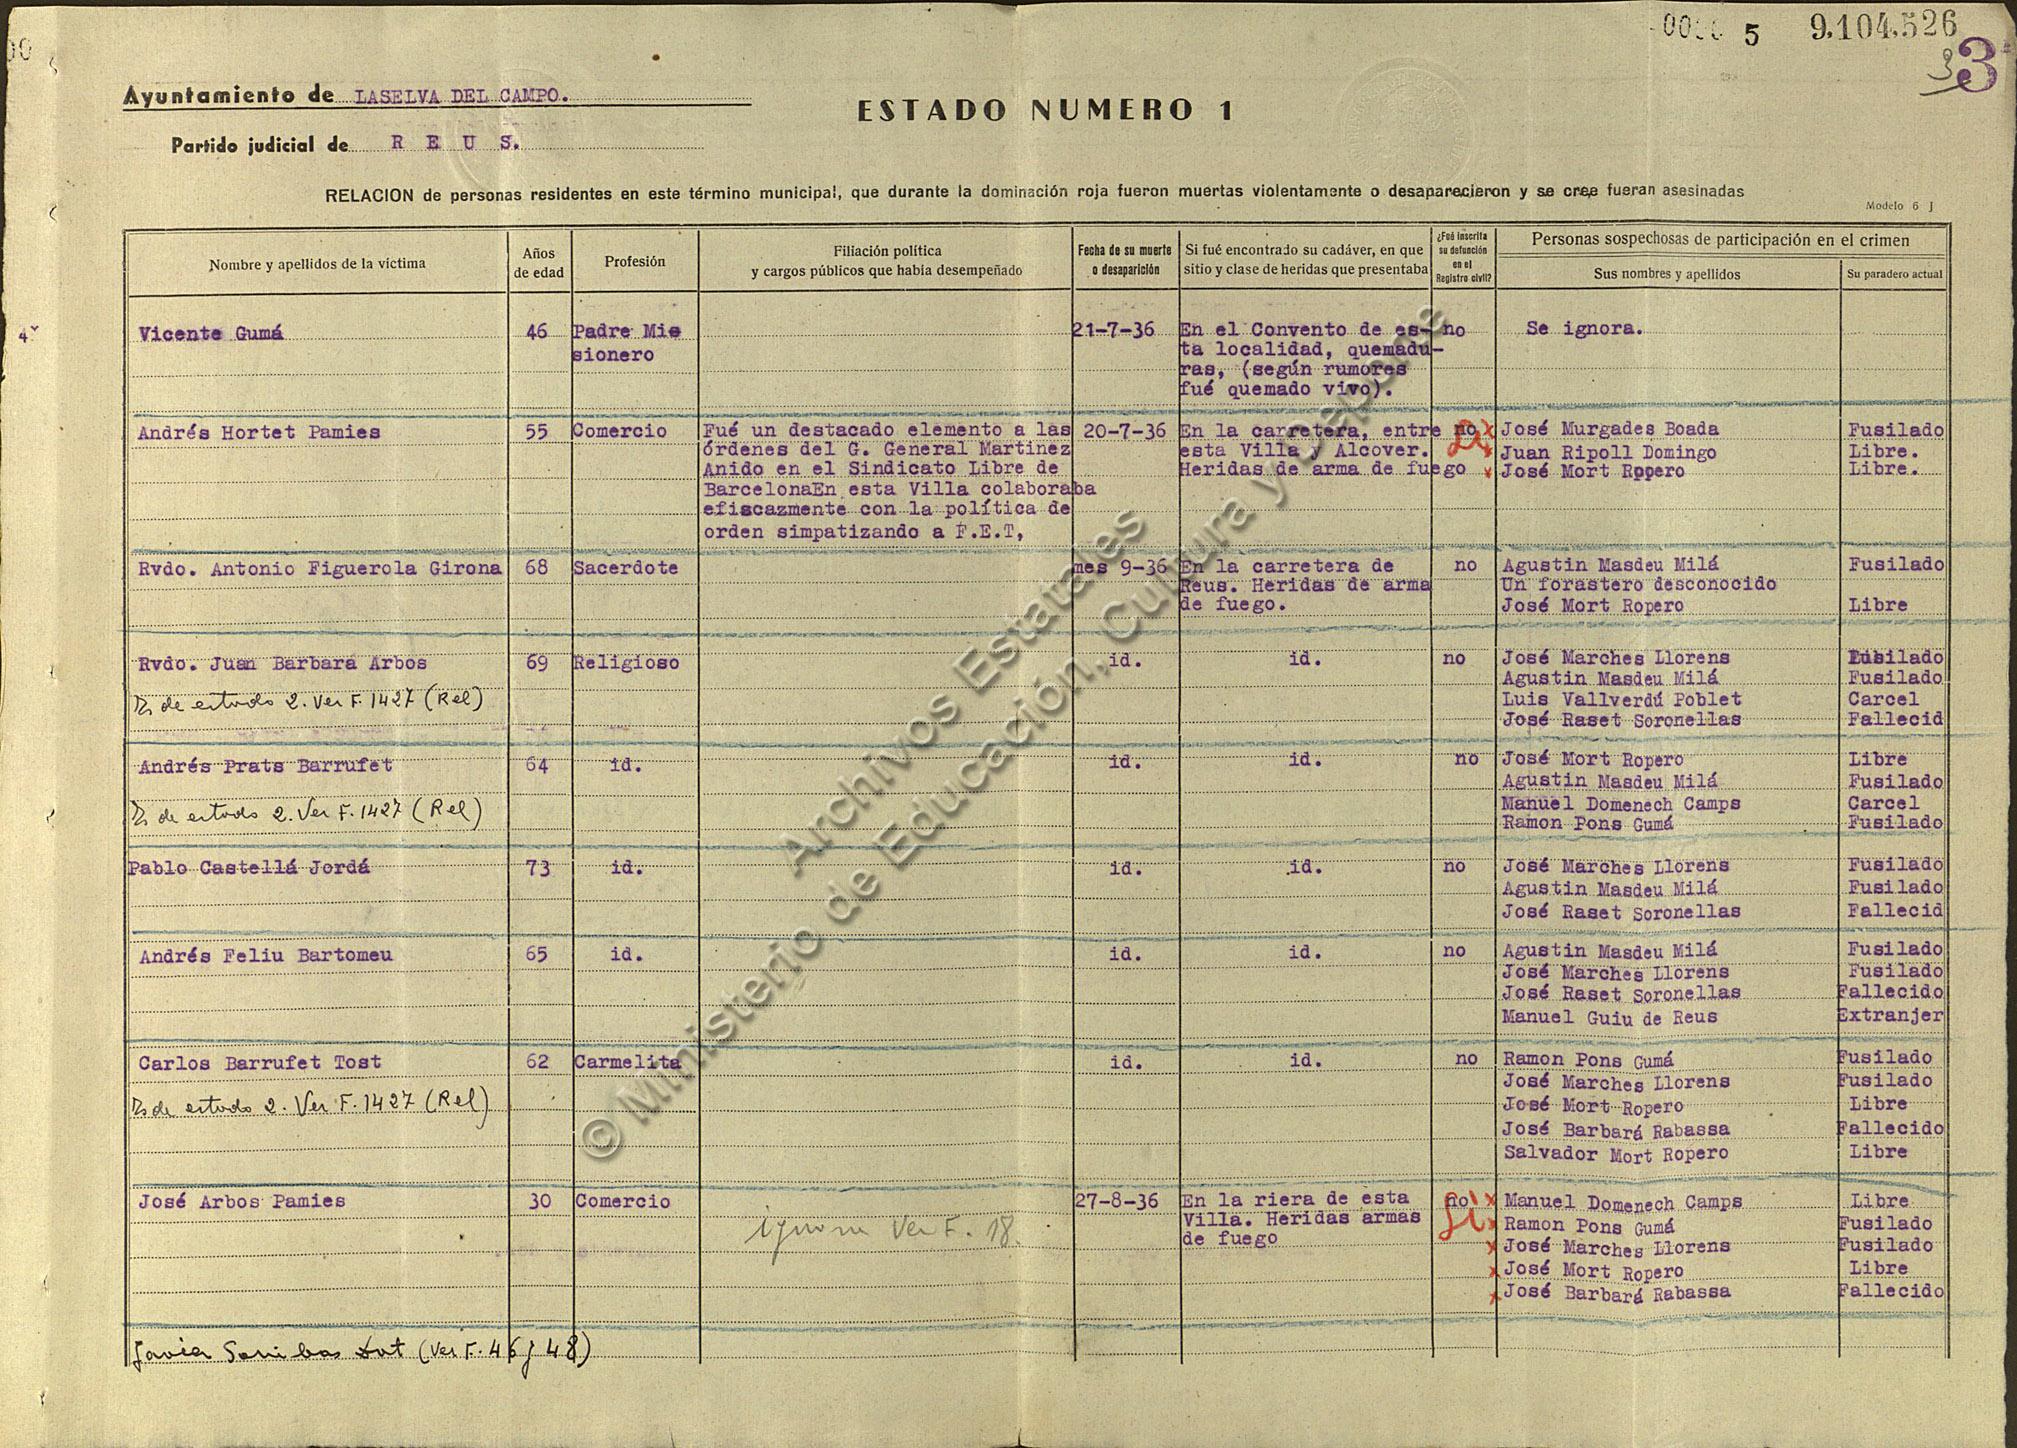 5 9.104.526
3 3
Ayuntamiento de LASELVA DEL CAMPO.
ESTADO NUMERO 1
Partido judicial de R E U S.
RELACION de personas residentes en este término municipal, que durante la dominación roja fueron muertas violentamente o desaparecieron y se cree fueran asesinadas
Modelo 6 J
Nombre y apellidos de la víctima
Años
de edad
Profesión
Filiación política
y cargos públicos que había desempeñado
Fecha de su muerte
o desaparición
Si fué encontrado su cadáver, en que
sitio y clase de heridas que presentaba
¿Fué inscrita
su defunción
en el
Registro civil?
Personas sospechosas de participación en el crimen
Sus nombres y apellidos
Su paradero actual
Vicente Gumá
46
Padre Mis
sionero
21-7-36
En el Convento de es-
ta localidad, quemadu-
ras, (según rumores
fué quemado vivo).
no
Se ignora.
Andrés Hortet Pamies
55
Comercio
Fué un destacado elemento a las
órdenes del G. General Martinez
Anido en el Sindicato Libre de
BarcelonaEn esta Villa colaboraba
efiscazmente con la política de
orden simpatizando a F.E.T,
20-7-36
En la carretera, entre
esta Villa y Alcover.
Heridas de arma de fuego
no
José Murgades Boada Fusilado
Juan Ripoll Domingo Libre.
José Mort Ropero Libre.
Rvdo. Antonio Figuerola Girona
68
Sacerdote
mes 9-36
En la carretera de
Reus. Heridas de arma
de fuego.
no
Agustin Masdeu Milá Fusilado
Un forastero desconocido
José Mort Ropero Libre
Rvdo. Juan Barbará Arbos
69
Religioso
id.
id.
no
José Marches Llorens Fusilado
Agustin Masdeu Milá Fusilado
Luis Vallverdú Poblet Carcel
José Raset Soronellas Fallecid
de estado 2. Ver F. 1427 (Rel)
Andrés Prats Barrufet
64
id.
id.
id.
no
José Mort Ropero Libre
Agustin Masdeu Milá Fusilado
Manuel Domenech Camps Carcel
Ramon Pons Gumá Fusilado
de estado 2. Ver F. 1427 (Rel)
Pablo Castellá Jordá
73
id.
id.
id.
no
José Marches Llorens Fusilado
Agustin Masdeu Milá Fusilado
José Raset Soronellas Fallecid
Andrés Feliu Bartomeu
65
id.
id.
id.
no
Agustin Masdeu Milá Fusilado
José Marches Llorens Fusilado
José Raset Soronellas Fallecido
Manuel Guiu de Reus Extranjer
Carlos Barrufet Tost
62
Carmelita
id.
id.
no
Ramon Pons Gumá Fusilado
José Marches Llorens Fusilado
José Mort Ropero Libre
José Barbará Rabassa Fallecido
Salvador Mort Ropero Libre
de estado 2. Ver F. 1427 (Rel)
José Arbos Pamies
30
Comercio
ignora Ver F. 18.
27-8-36
En la riera de esta
Villa. Heridas armas
de fuego
no
Si
Manuel Domenech Camps Libre
Ramon Pons Gumá Fusilado
José Marches Llorens Fusilado
José Mort Ropero Libre
José Barbará Rabassa Fallecido
(Ver F. 46 y 48)
© Ministerio de Educación, Cultura y Deporte
Archivos Estatales